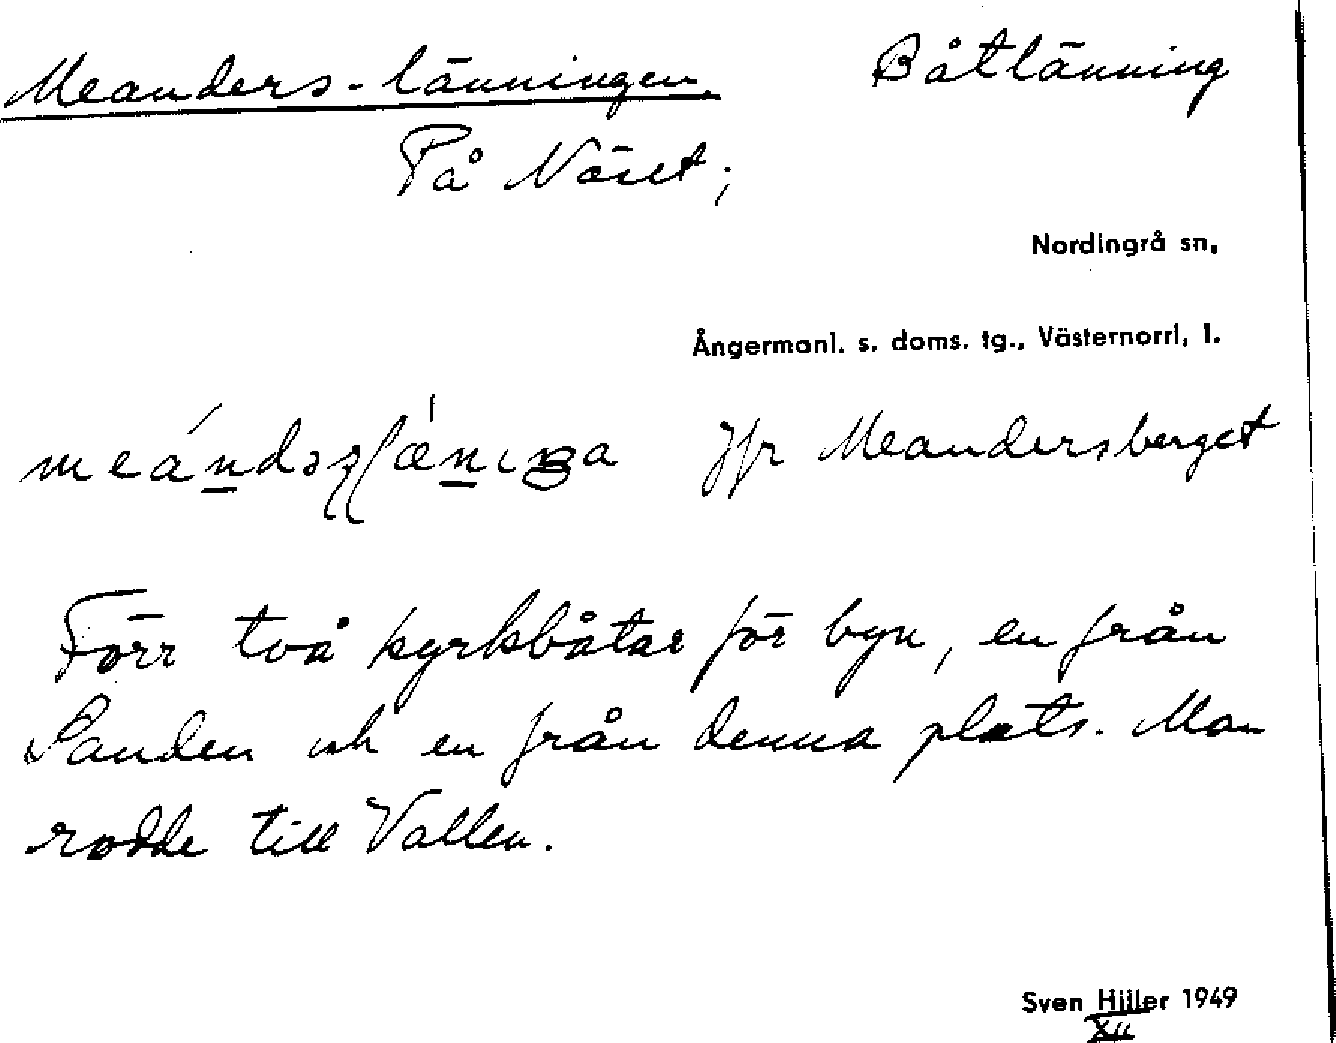 Meanders-länningen. Båtlänning
På Näset;
Nordingrå sn.
Ångermanl. s. doms. tg., Västernorrl. l.
Jfr Meandersberget
Förr två kyrkbåtar för byn, en från
Sanden och en från denna plats. Man
rodde till Vallen.
Sven Hiller 1949
XII